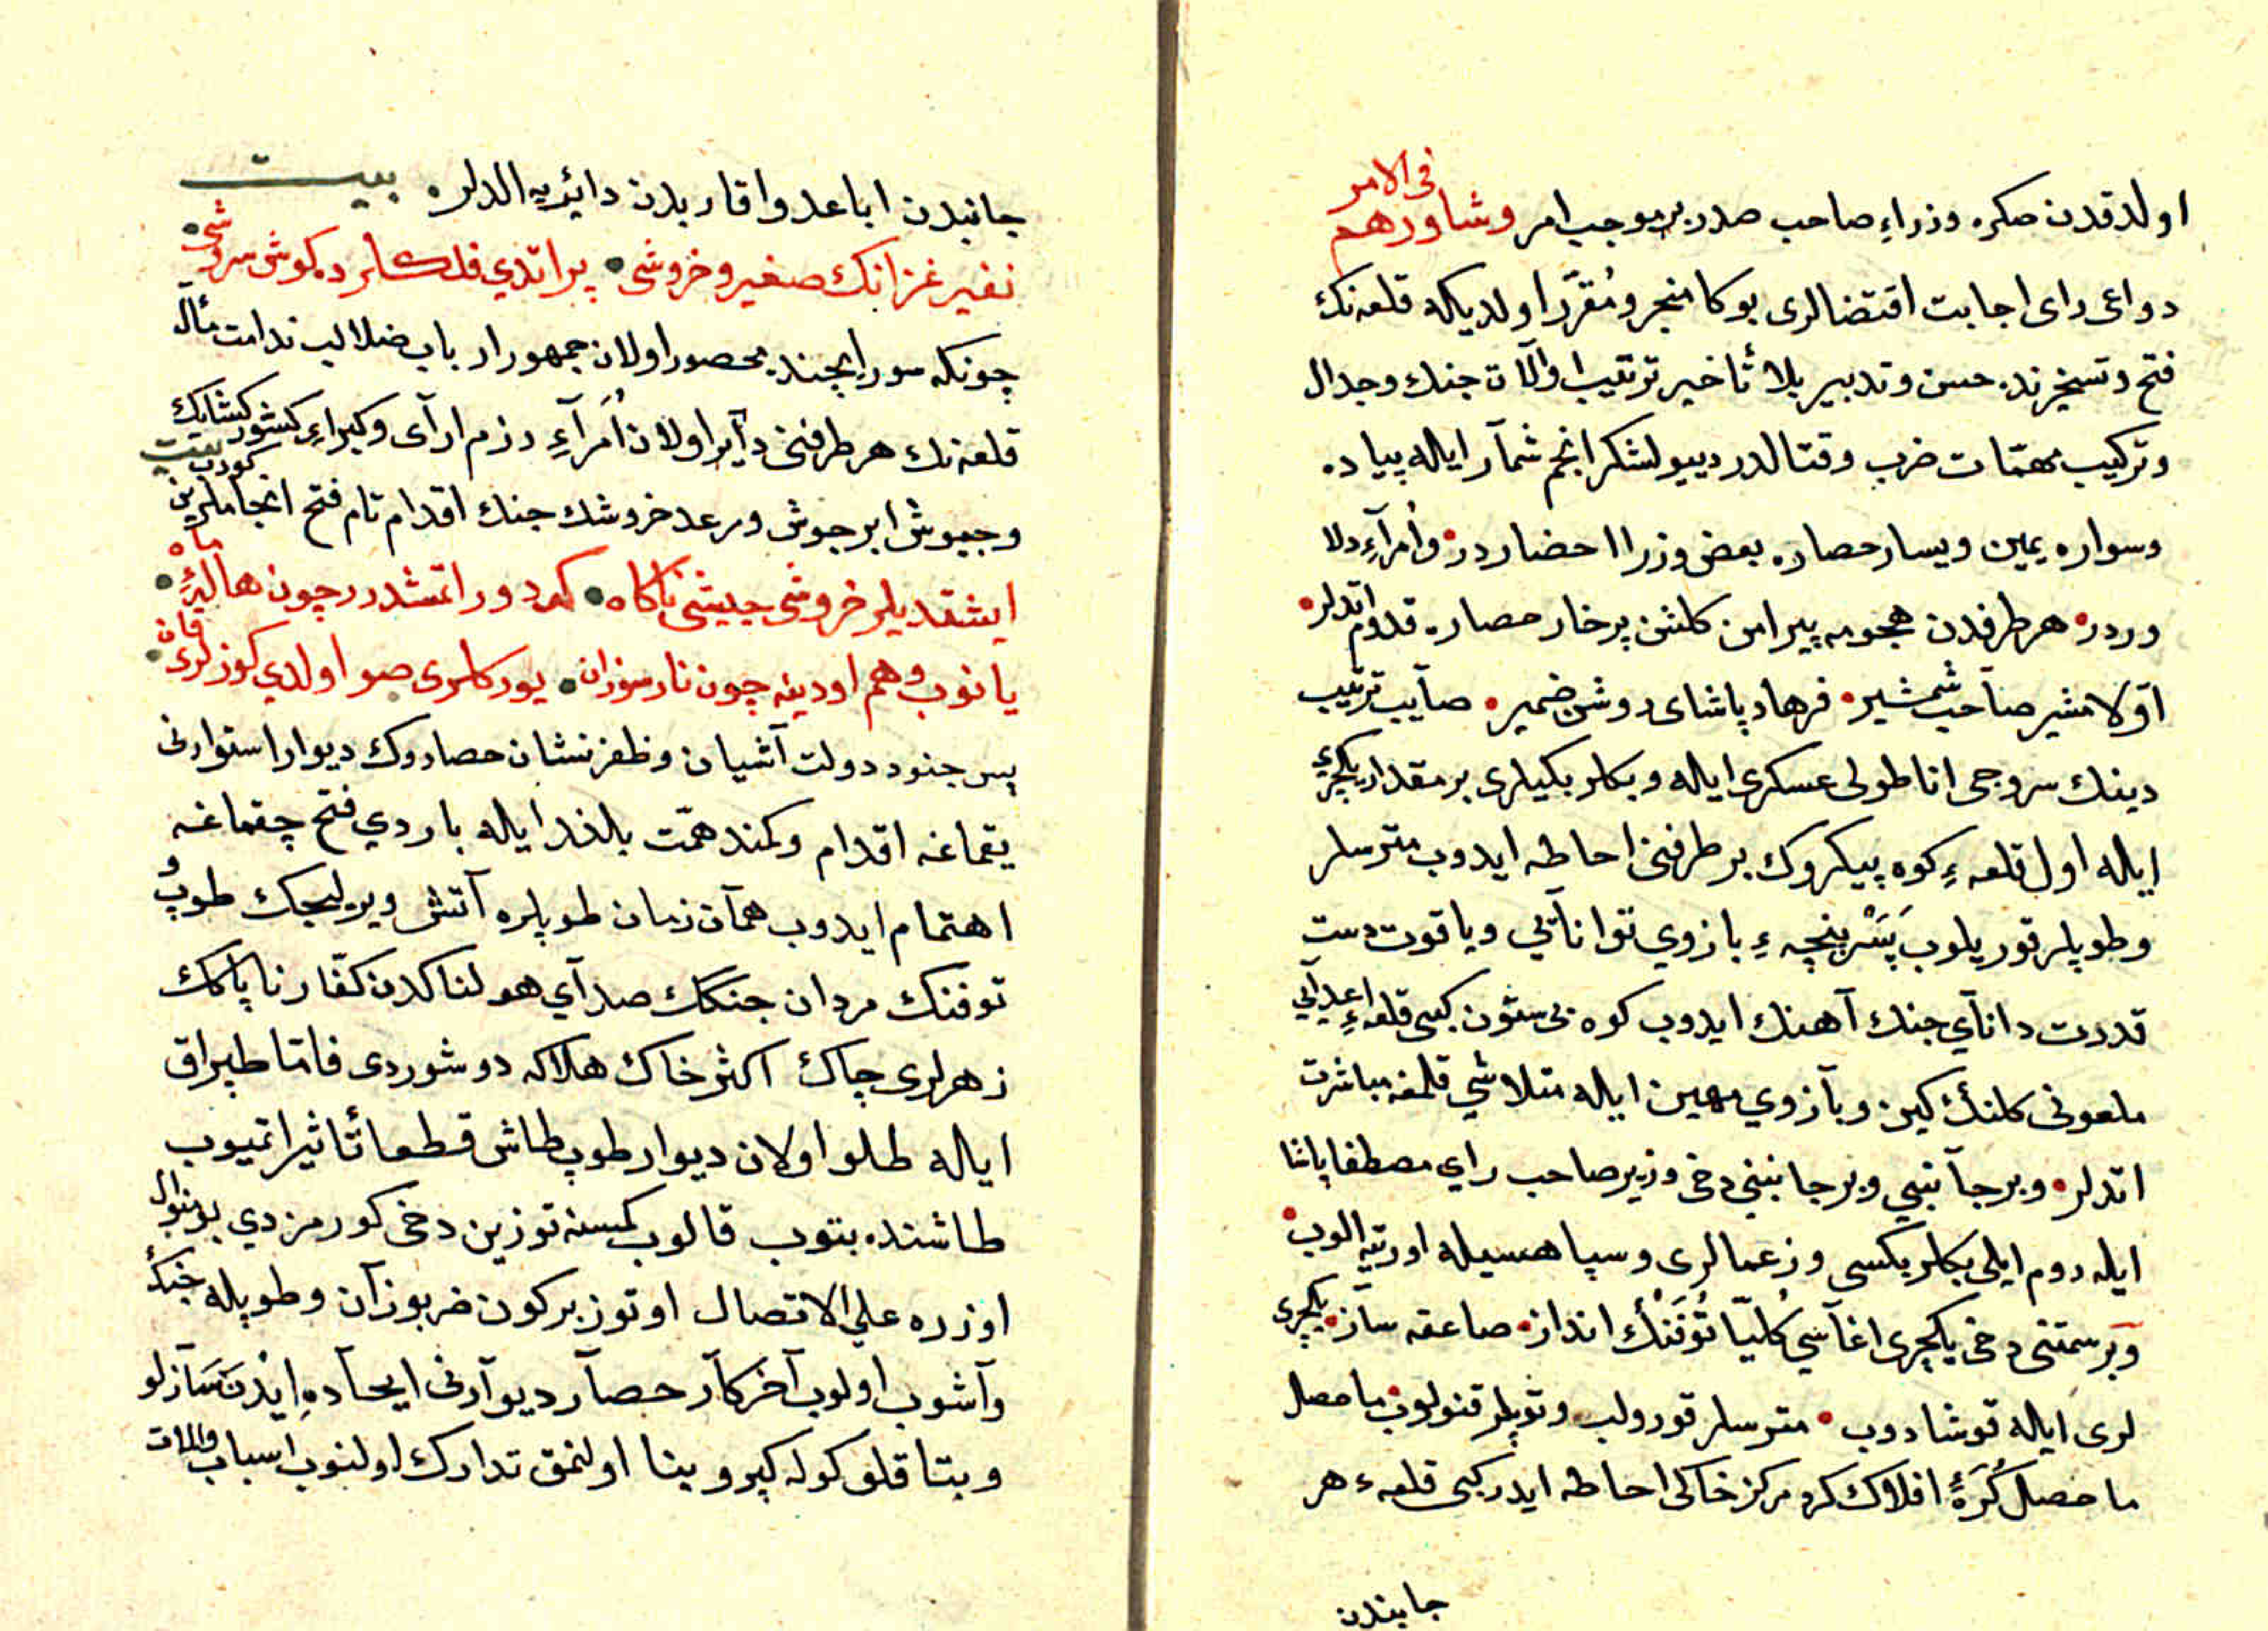 اولدقدن صكره وزراءِ صاحب صدر بر موجب امر وشاورهم فى الامر
دواعى راى اجابت اقتضالرى بوكا منجر و مُقرَّر اولديكه قلعه‌نك
فتح و تسخيرنده حسن و تدبير بلا تأخير ترتيب ادوالآت جنك وجدال
وتركيب مهمّات ضرب وقتالدر دييو لشكر انجم شمآر ايله پياده
وسواره يمين ويسار حصاره بعض وزرا احضار در • وأمرآءِ دلا
وردر • هر طرفدن هجومه پيرامن كلشن پرخار حصاره قدوم اتدلر •
اوّلا مشير صاحب شمشير • فرهاد پاشاى روشن ضمير • صآيب ترتيب
دينك سروجى اناطولى عسكرى ايله وبكلربكيلرى بر مقدار يكچرى
ايله اول قلعهءِ كوه پيكروك بر طرفنى احاطه ايدوب مترسلر
وطوپلر قوريلوب پَسْ پنچهءِ بازوي توانآيى ويا قوت دست
قدرت دانآي جنك آهنك ايدوب كوه بى ستون كبى قلعهءِ اعدآيى
ملعونى كلنك كين وبآزوي مهين ايله متلاشي قلمغه مباشرت
اتدلر • وبرجآنبى وبرجانبنى دخى وزير صاحب راي مصطفا پاشا
ايله روم ايلى بكلربكسى وزعمالرى وسپاهسيله اورتيه الوب •
وبر سمتنى دخى يكچرى اغآسي كُليّا تُوفَنْك انداز • صاعقه سآز • يكچرى
لرى ايله قوشادوب • مترسلر قورولب وتوپلر قنولوب ما حصل
ما حصل كُرَهٔ افلاك كره مركز خاكى احاطه ايدر كبى قلعهء هر
جانبدن
جانبدن اباعد واقاربدن دائريه الدلر • بيت
نفير غزانك صفير وخروشى • پر اتدي فلكلرده كوش سروشى •
چونكه سور ايچنده محصور اولان جمهور ارباب ضلالب ندامت مأل
قلعه‌نك هر طرفنى دآير اولان اُمرآءِ رزم ارآى وكبراءِ كشور كشايك
وجيوش ابر جوش ورعد خروشك جنك اقدام تام فتح انجاملرين كورب بيت
ايشتديلر خروشى جيشى ناكاه • كه دور اتمشدر چون هاليهٔ ماه •
يانوب وهم اودينه چون نار سوزان • يوركلرى صو اولدي كوزلرى قان •
پس جنود دولت آشيان وظفر نشان حصاروك ديوار استوارنى
يقماغه اقدام وكمند همّت بلند ايله باردي فتح چقماغه
اهتمام ايدوب همآن زمان طوپلره آتش ويريلجك طوپ و
توفنك مردان جنكك صدآي هولناكدن كفّار ناپاكك
زهرلرى چاك اكثر خاك هلاكه دوشوردى فامّا طپراق
ايله طلو اولان ديوار طوپ طاش قطعا تأثير اتميوب
طاشنده بتوب قالوب كمسنه توزين دخى كورمزدي بو منوال
اوزره على الاتصال اوتوز بركون ضربوزآن وطوپله جنك
وآشوب اولوب آخر كآر حصآر ديوآرنى ايحآده ايدن سآزلو
وبتاقلق كوله كپرو بنا اولنمق تدارك اولنوب اسباب والات